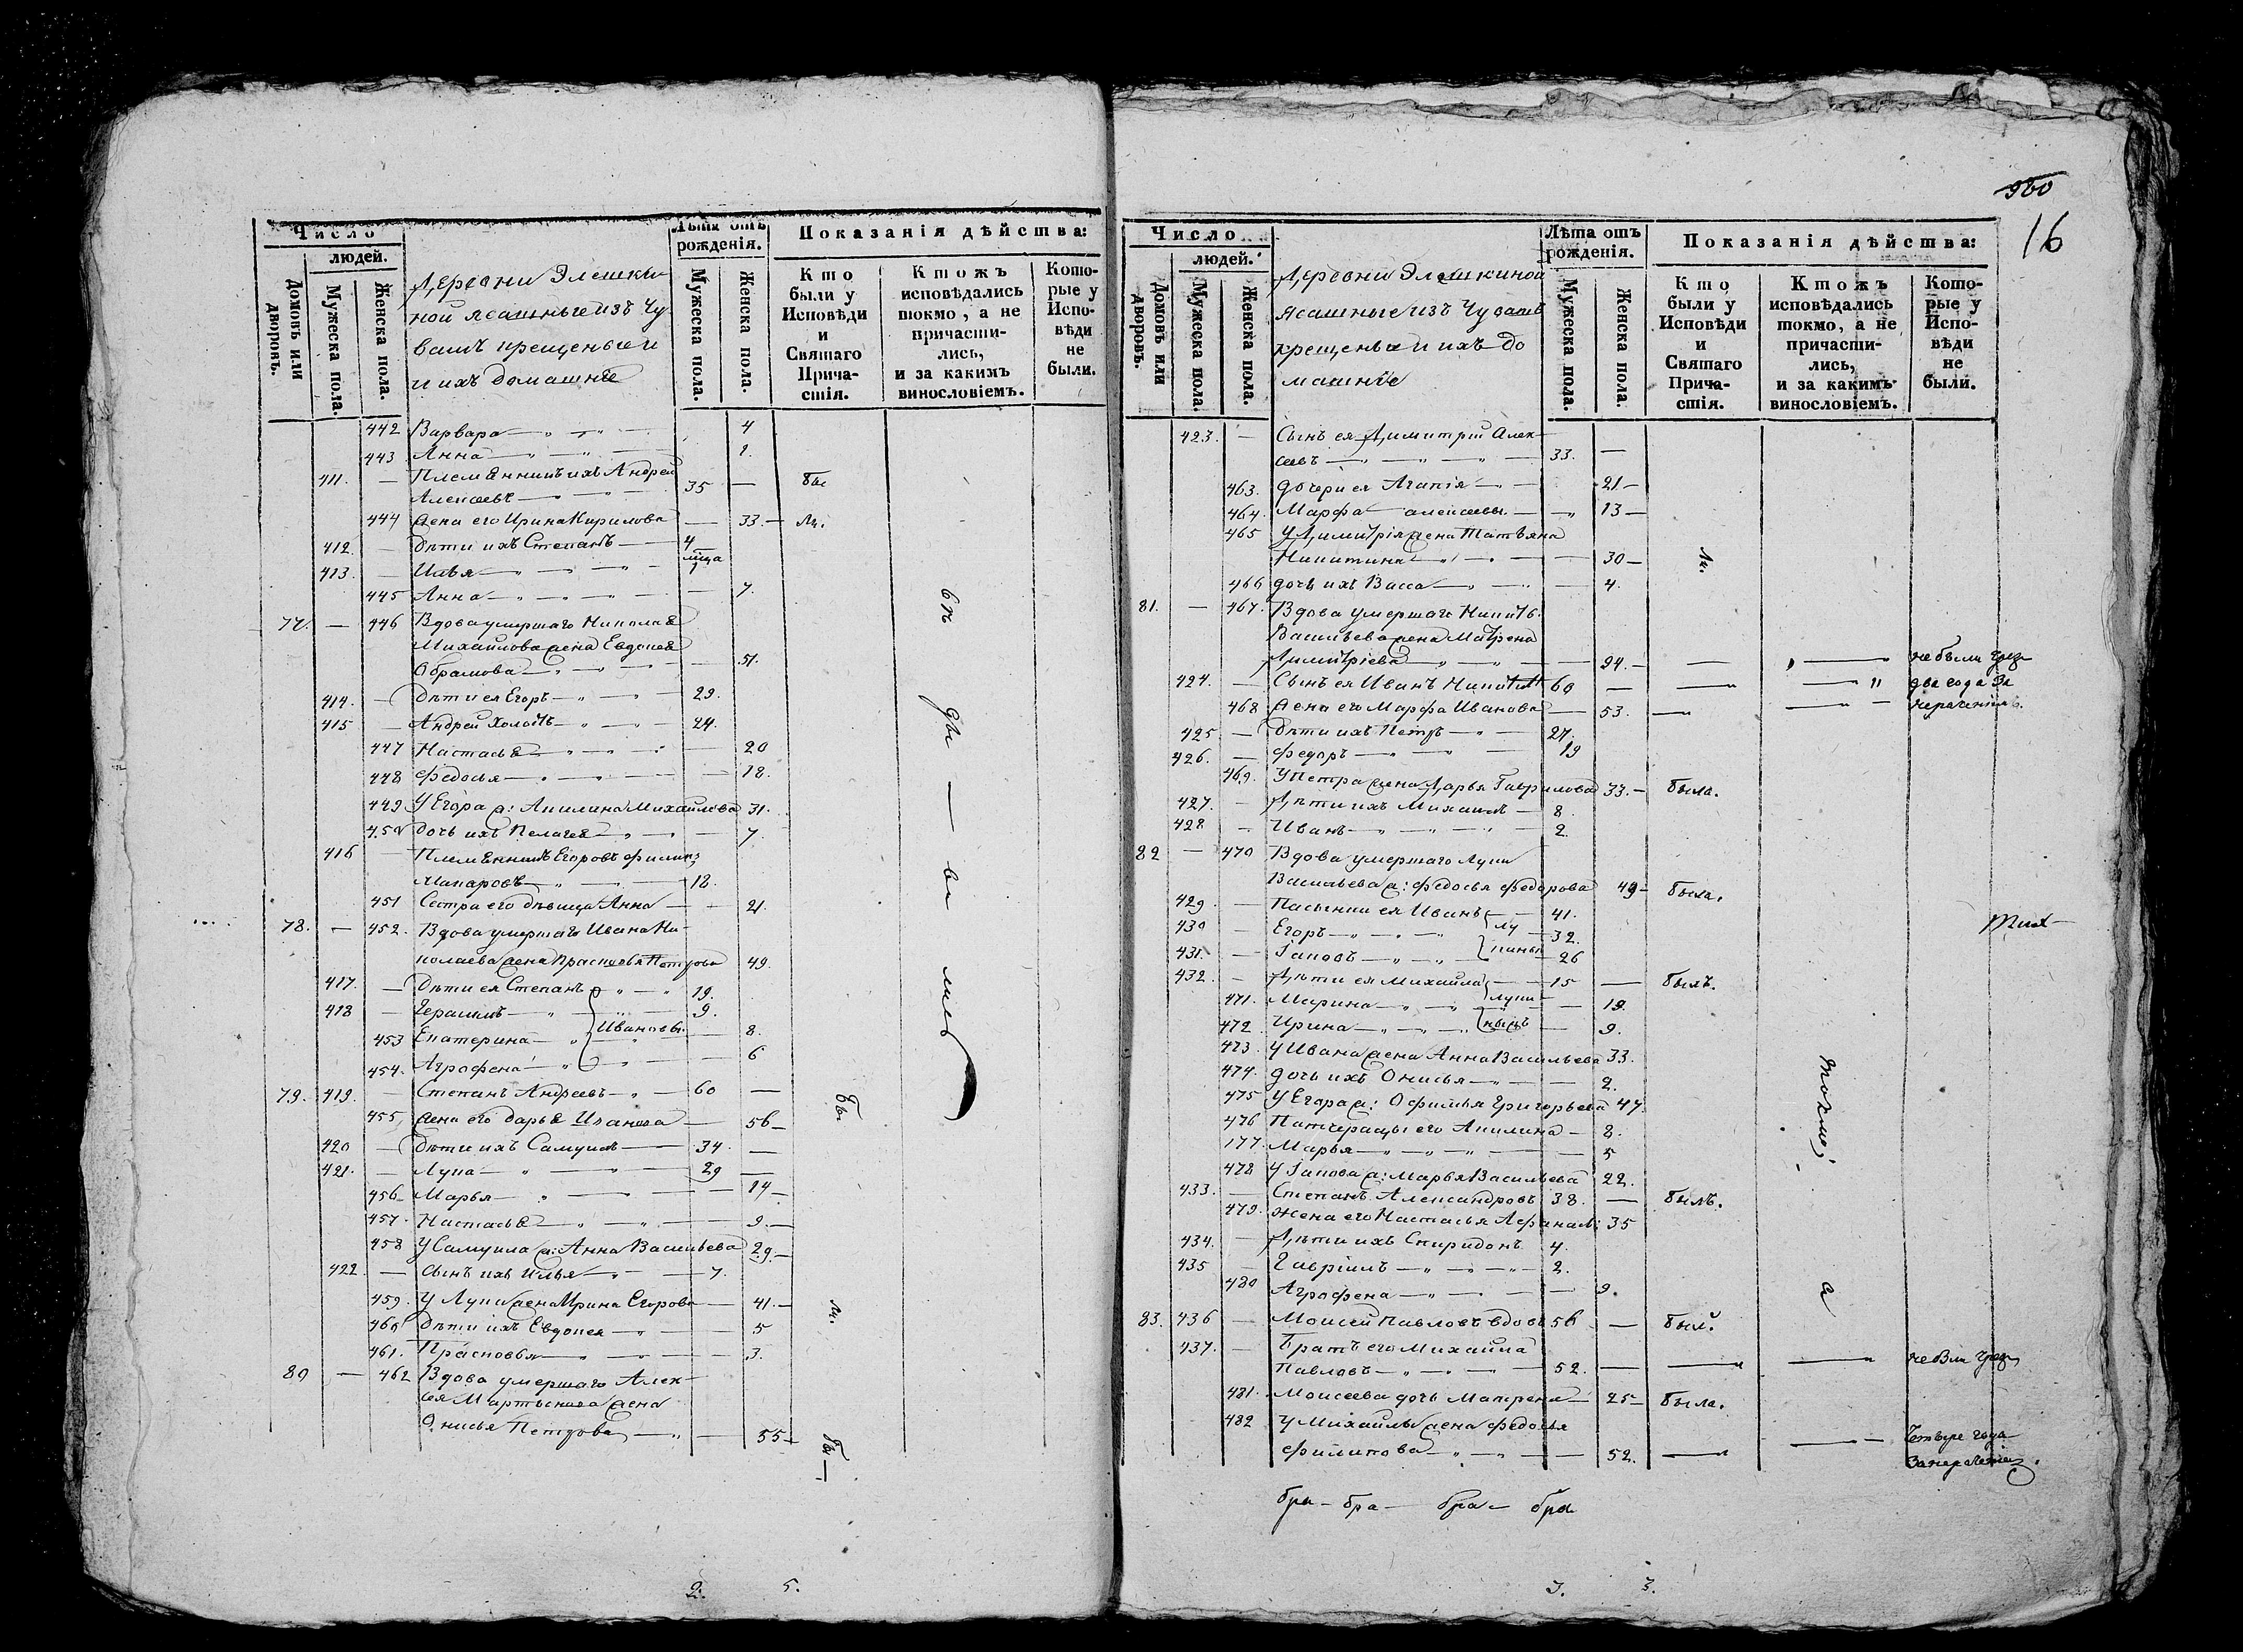 Число
людей.
Домовъ или дворовъ.
Мужеска пола.
Женска пола.
Деревни Элешки-
ной ясашные изъ Чу-
вашъ крещеные
и ихъ домашніе
Лѣта отъ рожденія.
Мужеска пола.
Женска пола.
Показанія дѣйства:
Кто были у Исповѣди и Святаго Причастія.
Ктожъ исповѣдались токмо, а не причастились, и за какимъ винословіемъ.
Которые у Исповѣди не были.
442 Варвара 4
443 Анна
411. Племянникъ ихъ Андрей
Алексѣевъ 35 бы
444 жена его Ирина Кирилова 33. ли.
412. Дѣти ихъ Степанъ 4
413. Илья
445 Анна 7.
77. 446 Вдова умершаго Николая
Михайлова жена Евдокея
Обрамова 51.
414. Дѣти ея Егоръ 29.
415 Андрей холостъ 24.
447 Настасья 20
448 Федосья 18.
449 У Егора ж: Акилина Михайлова 31.
450 дочь ихъ Пелагея 7.
416 Племянникъ Егоровъ Филипъ
Макаровъ 18.
451 Сестра его дѣвица Анна 21.
78. 452. Вдова умершаго Ивана Ни-
колаева жена Прасковья Петрова 49.
417. Дѣти ея Степанъ 19.
418 Герасимъ 9.
Ивановы
453 Екатерина 8.
454. Агрофена 6
79. 419. Степанъ Андреевъ 60
455 жена его Дарья Иванова 56
420 Дѣти ихъ Самуилъ 34.
421. Лупа 29
456 Марья 14
457. Настасья 9.
458 У Самуила ж: Анна Васильева 29
422. сынъ ихъ Илья 7.
459. У Лупы жена Ирина Егорова 41.
460 Дѣти ихъ Евдокея 5
461. Прасковья 3.
80 462 Вдова умершаго Алек-
сея Мартынова жена
Онисья Петрова 55
бы
ли.
бы
2. 5.
960
16
Число
людей.
Домовъ или дворовъ.
Мужеска пола.
Женска пола.
Деревни Элешкиной
ясашные изъ Чувашъ
крещеные и ихъ до
машніе
Лѣта отъ рожденія.
Мужеска пола.
Женска пола.
Показанія дѣйства:
Кто были у Исповѣди и Святаго Причастія.
Ктожъ исповѣдались токмо, а не причастились, и за какимъ винословіемъ.
Которые у Исповѣди не были.
423. Сынъ ея Димитрій Алек-
сеевъ 33.
463. дочери ея Агапія 21
464. Марфа алексеевы 13
465 У Димитрія жена Татьяна
Никитина 30 ли.
466 дочь ихъ Васса 4.
81. 467. Вдова умершаго Никиты
Васильева жена Матрена
Димитріева 94. не были чрез
424. Сынъ ея Иванъ Никитинъ 60 два года за
468 жена его Марфа Иванова 53. нераченія.
425 Дѣти ихъ Петръ 27.
426. Федоръ 19
469. У Петра жена Дарья Гаврилова 33. была.
427. Дѣти ихъ Михаилъ 8
428 Иванъ 2.
82 470 Вдова умершаго Лупы
Васильева ж: Федосья Федорова 49 была.
429. Пасынки ея Иванъ 41.
430 Егоръ 32.
431. Іаковъ 26
Лупины
432. Дѣти ея Михайла 15 былъ.
471. Марина 19.
472. Ирина 9.
473. У Ивана жена Анна Васильева 33.
474. дочь ихъ Онисья 2.
475 У Егора ж: Офимья Григорьева 47.
476 Патчерицы его Акилина 8.
177. Марья 5
478 У Іакова ж: Марья Васильева 22.
433. Степанъ Александровъ 38. былъ.
479. жена его Настасья 35
434. Дѣти ихъ Спиридонъ 4.
435 Гавріилъ 2.
480 Агрофена 9.
83. 436 Моисей Павловъ вдовъ 56 был.
437. Братъ его Михайла
Павловъ 52. не были чрез
481. Моисеева дочь Матрена 25 была.
482 У Михайлы жена Федосья
Филипова 52. Четыре года
за нераченіе.
токмо;
а
бра бра бра бра
3. 3.